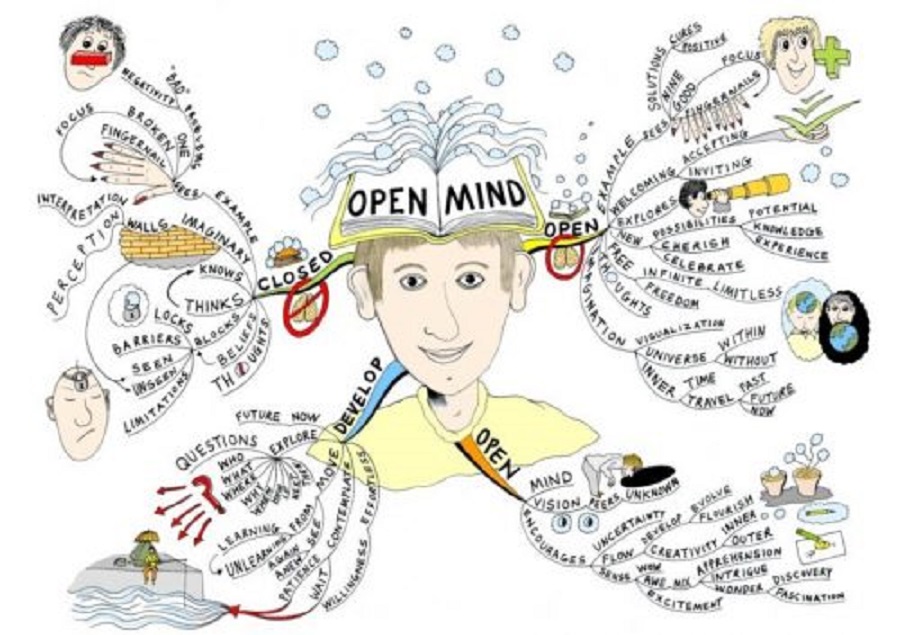 OPEN MIND
CLOSED
EXAMPLE
SEES
"BAD" PROBLEMS
NEGATIVITY
ONE
BROKEN
FINGERNAIL
FOCUS
INTERPRETATION
PERCEPTION
IMAGINARY
WALLS
KNOWS
THINKS
BLOCKS
LOCKS
BARRIERS
SEEN
UNSEEN
LIMITATIONS
BELIEFS
THOUGHTS
OPEN
EXAMPLE
SEES
SOLUTIONS
CURES
POSITIVE
NINE
GOOD
FINGERNAILS
FOCUS
WELCOMING
ACCEPTING
INVITING
EXPLORES
NEW
POSSIBILITIES
POTENTIAL
KNOWLEDGE
EXPERIENCE
CHERISH
CELEBRATE
FREE
THOUGHTS
INFINITE
LIMITLESS
FREEDOM
IMAGINATION
VISUALIZATION
UNIVERSE
WITHIN
WITHOUT
INNER
TIME
TRAVEL
PAST
FUTURE
NOW
DEVELOP
EXPLORE
FUTURE NOW
QUESTIONS
WHO
WHAT
WHERE
WHY
WHEN
MOVE
FROM
LEARNING
UNLEARNING
CONTEMPLATE
SEE
ANEW
AGAIN
EFFORTLESS
PATIENCE
WAIT
WILLINGNESS
OPEN
MIND
VISION
PEERS
UNKNOWN
ENCOURAGES
UNCERTAINTY
FLOW
DEVELOP
EVOLVE
FLOURISH
CREATIVITY
INNER
OUTER
SENSE
WOW
AWE
MIX
APPREHENSION
INTRIGUE
WONDER
DISCOVERY
FASCINATION
EXCITEMENT